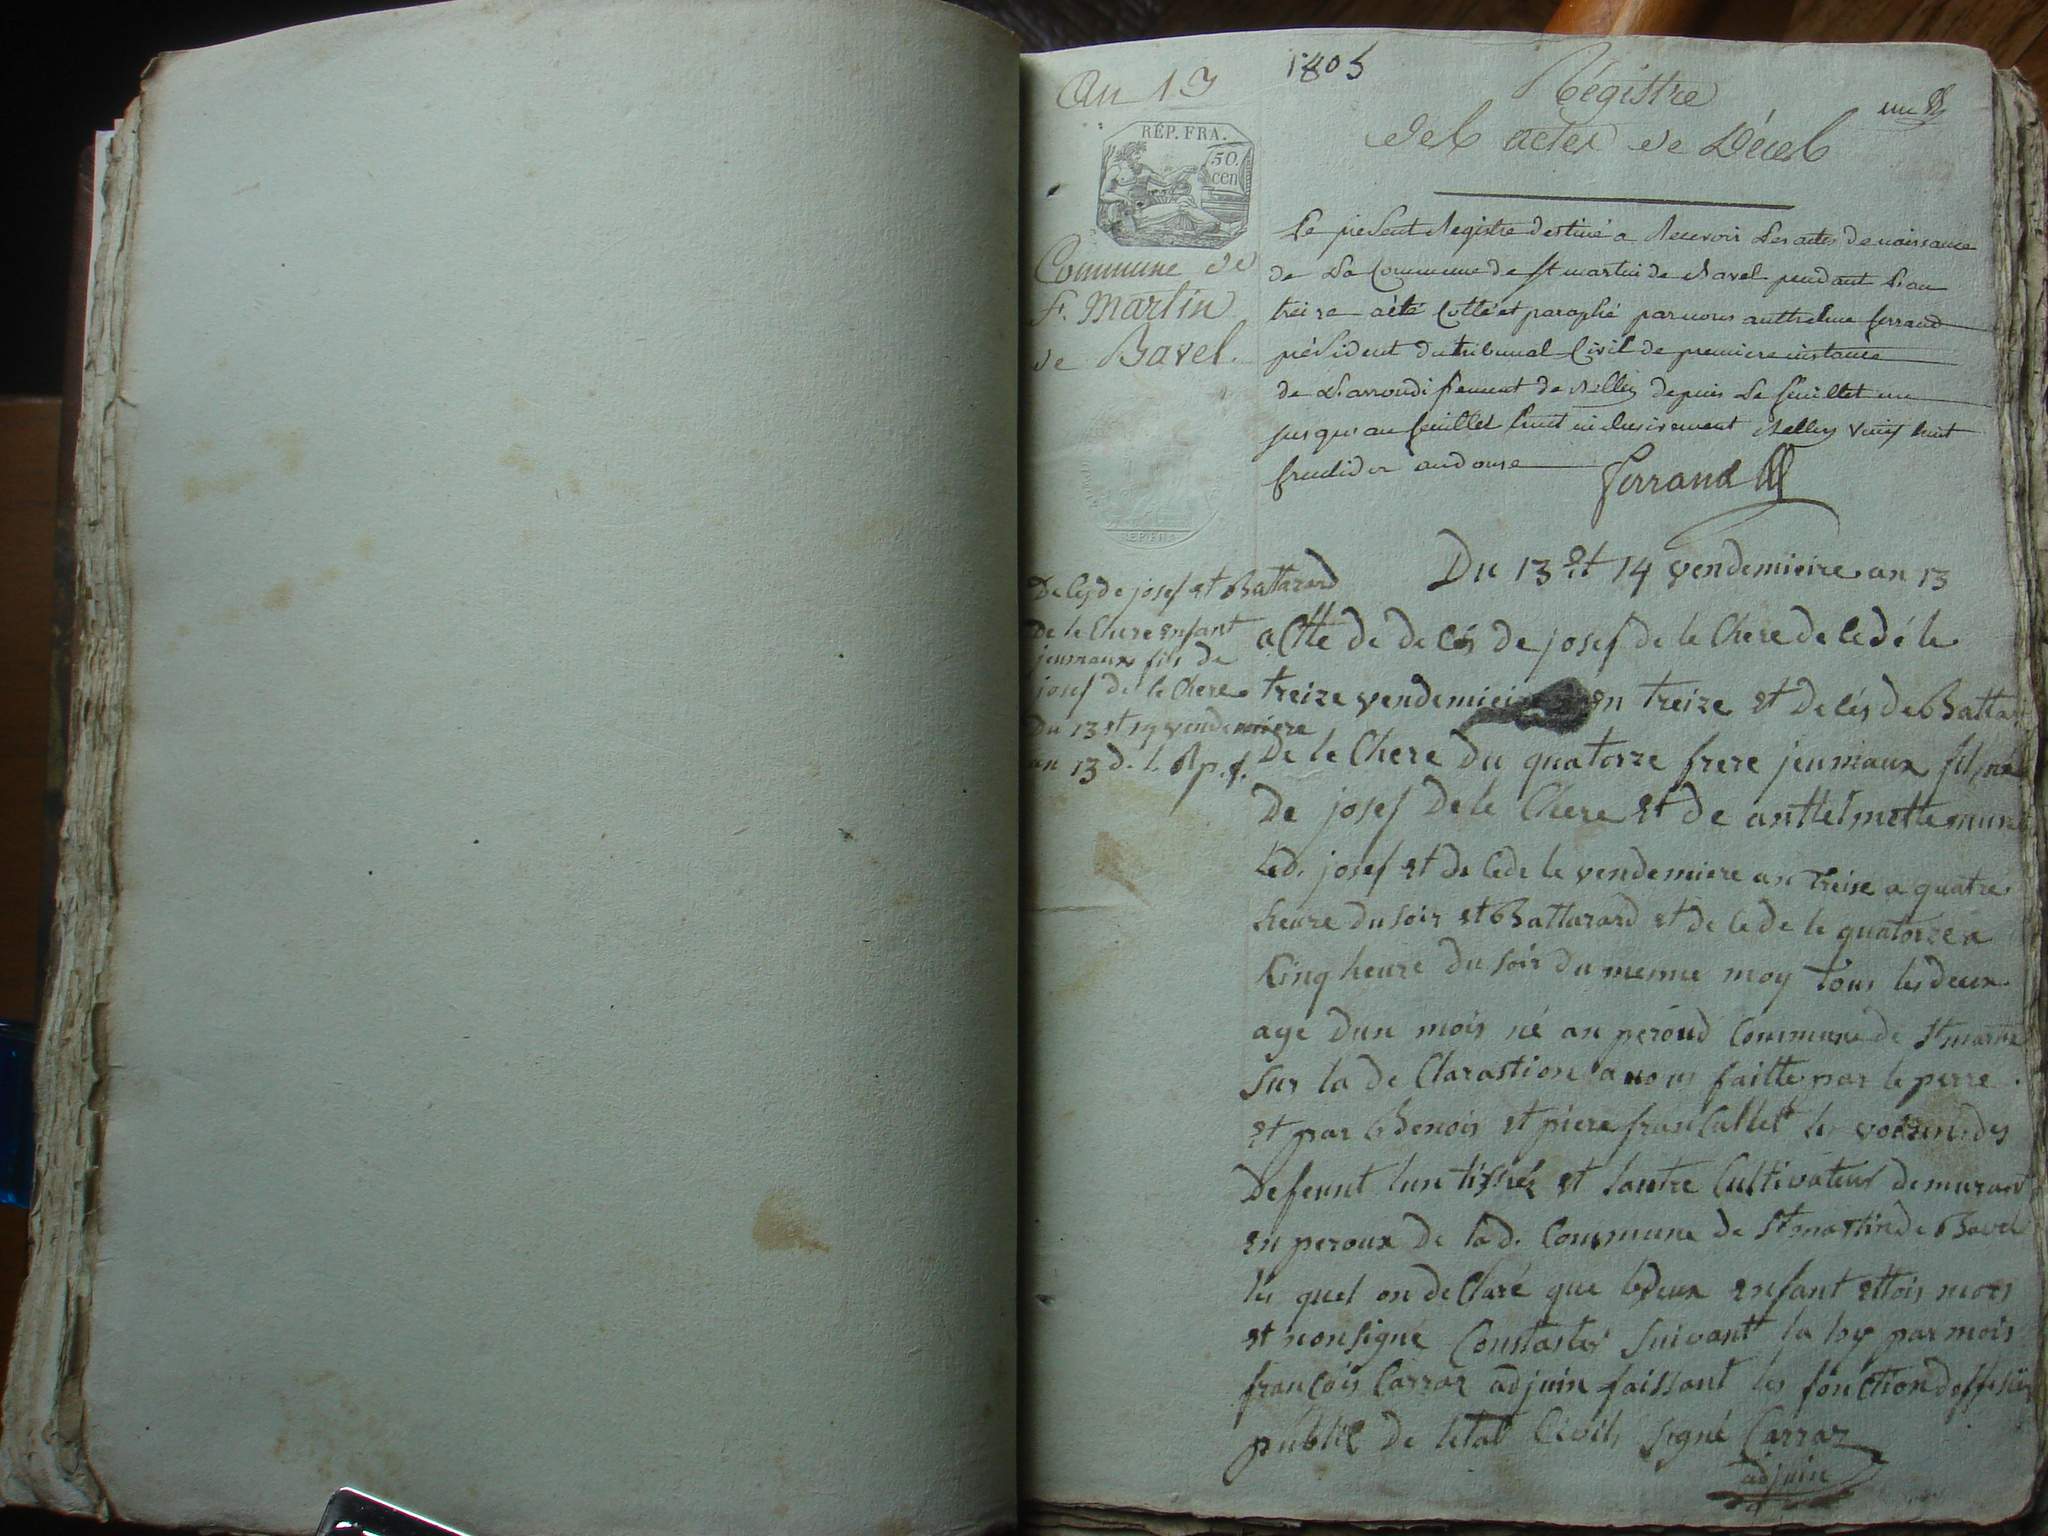 An 13
1805
Régistre
des actes de Décès
RÉP. FRA.
50.
cen
Commune de
St. Martin
de Bavel.
Le present Registre destiné a Recevoir Les actes de naissance
de La Commune de St martin de Bavel pendant L'an
treize a été Cotté et paraphé par nous anthelme ferrand
président du tribunal Civil de premiere instance
de L'arrondissement de Belley depuis Le feuillet un
jusqu'au feuillet huit inclusivement Belley vingt huit
fructidor an douse
ferrand
REP. FRA
De Cés de josef et Battarard
De le Chere enfant
jeumaux fils de
josef de le Chere
Du 13 et 14 vendemiere
an 13 d. l. Rp. f.
Du 13 et 14 vendemieire an 13
actte de de Cés de josef de le Chere de cedé le
treize vendemieire en treize et De cés de Battar
De le Chere Du quatorze frere jeumaux fil
De josef De le Chere et de anttelmette
led. josef et de cede le vendemiere an treise a quatre
heure du soir et Battarard et de ce de le quatorze a
Cinq heure du soir du meme moy tous les deux
age dun mois né an peroud Commune de St martin
sur la de Clarastion a nous faitte par le perre
et par Benois et piere franCallet les voisin des
defeunt lun tissier et lautre Cultivateur demurant
en peroux de lad. Commune de St martin de Bavel
les quel on de Claré que le deux enfant ettois mors
et non signe Constaster suivant la loy par mois
françois Carraz adjuin faissant les fonction doffisier
publie de létat Civil, signé Carraz
adjuin